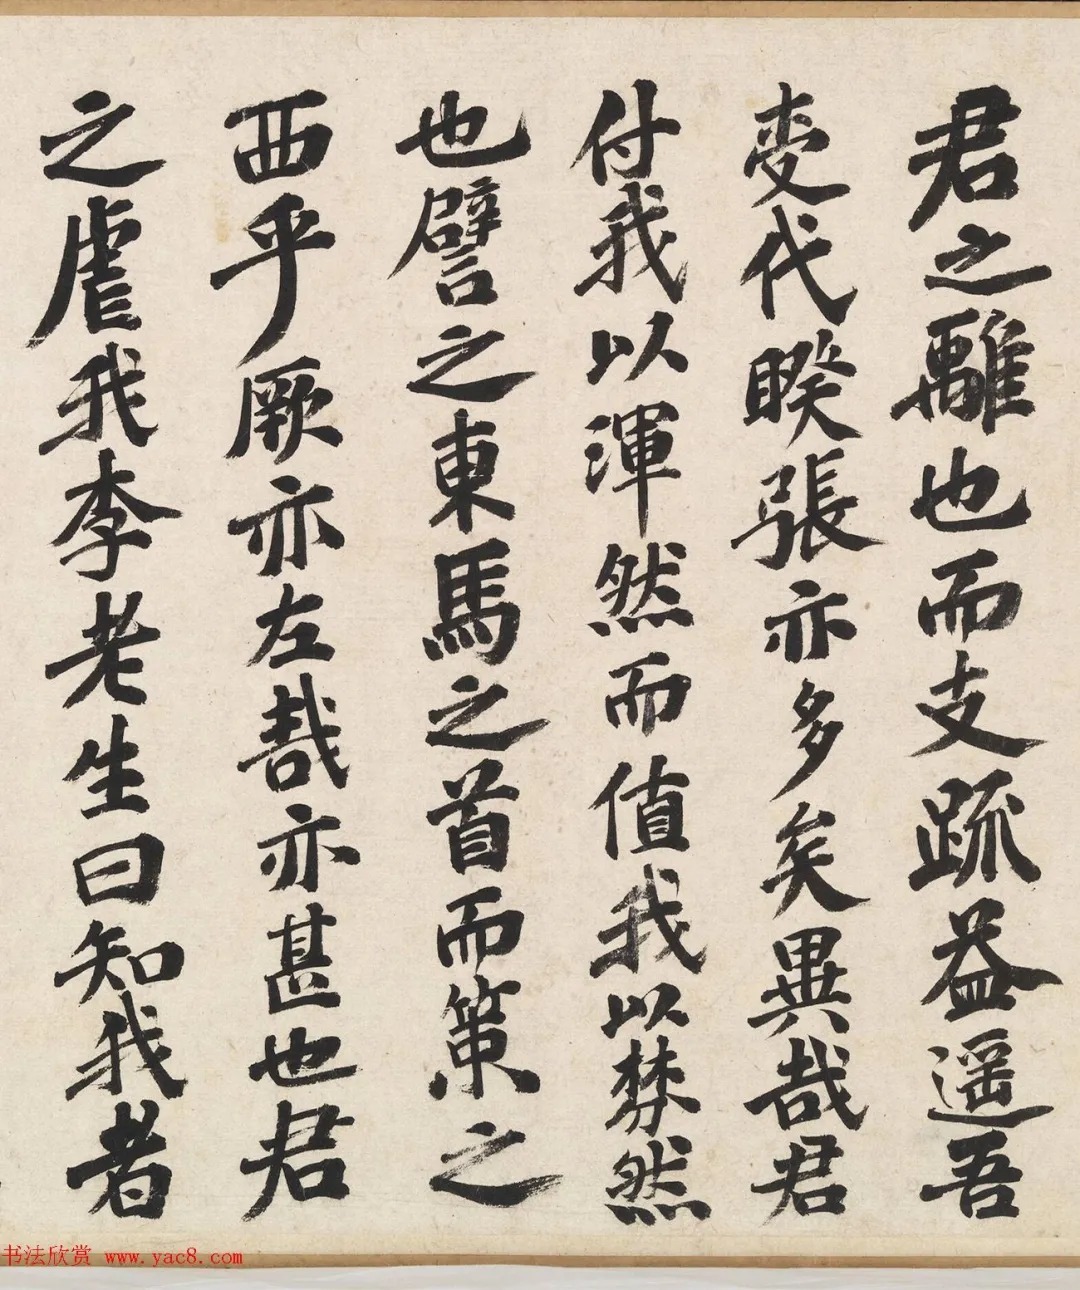 君之離也而支疏益遥吾
变代睽張亦多矣異哉君
付我以渾然而值我以棼然
也譬之東馬之首而策之
西乎厥亦左哉亦甚也君
之虐我李老生曰知我者
书法欣赏 www.yac8.com